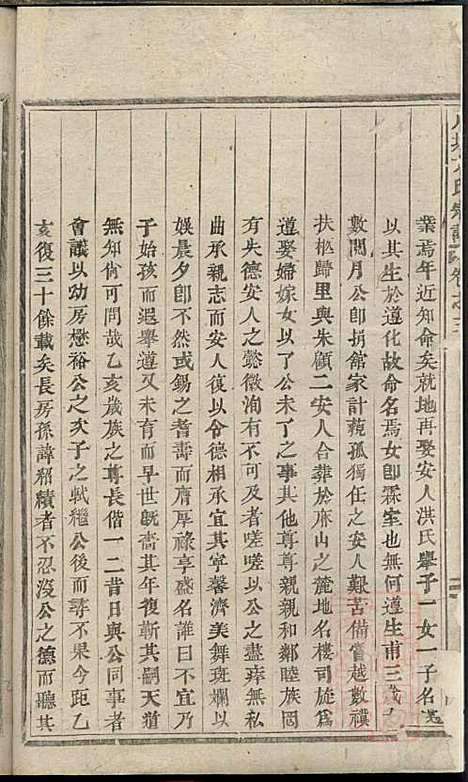 氏宗譜卷之三
業焉年近知命矣就地再娶安人洪氏舉子一女一子名遵
以其生於遵化故命名焉女卽霖室也無何遵生甫三歲
數閱月公卽捐館家計藐孤獨任之安人艱苦備嘗越數襈
扶柩歸里與朱顧二安人合葬於麻山之麓地名樓司旋爲
遵娶婦嫁女以公未了之事其他尊尊親親和鄰睦族罔
有失德安人之懿微洵有不可及者嗟嗟以公之盡瘁無私
曲承親志而安人復以令德相承宜其寧馨濟美舞斑斕以
娛晨夕卽不然或錫之耆壽而膺厚祿享盛名誰曰不宜乃
子始孩而遐舉遵又未育而早世旣嗇其年復斬其嗣天道
無知尙可問哉乙亥歲族之尊長偕一二昔日與公同事者
會議以幼房懋裕公之次子之軾繼公後而尋不果今距乙
亥復三十餘載矣長房孫諱緒績者不忍沒公之德而聽其